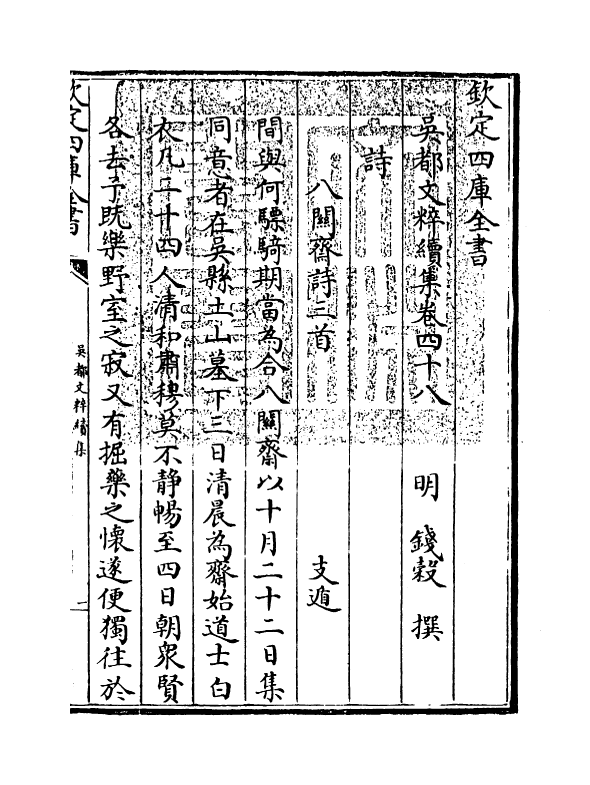 欽定四庫全書
吳都文粹續集卷四十八
明 錢穀 撰
詩
八關齋詩三首 支遁
間與何驃騎期當為合八關齋以十月二十二日集
同意者在吳縣土山墓下三日清晨為齋始道士白
衣凡二十四人清和肅穆莫不静暢至四日朝衆賢
各去予既樂野室之寂又有掘藥之懷遂便獨往於
欽定四庫全書
吳都文粹續集
一